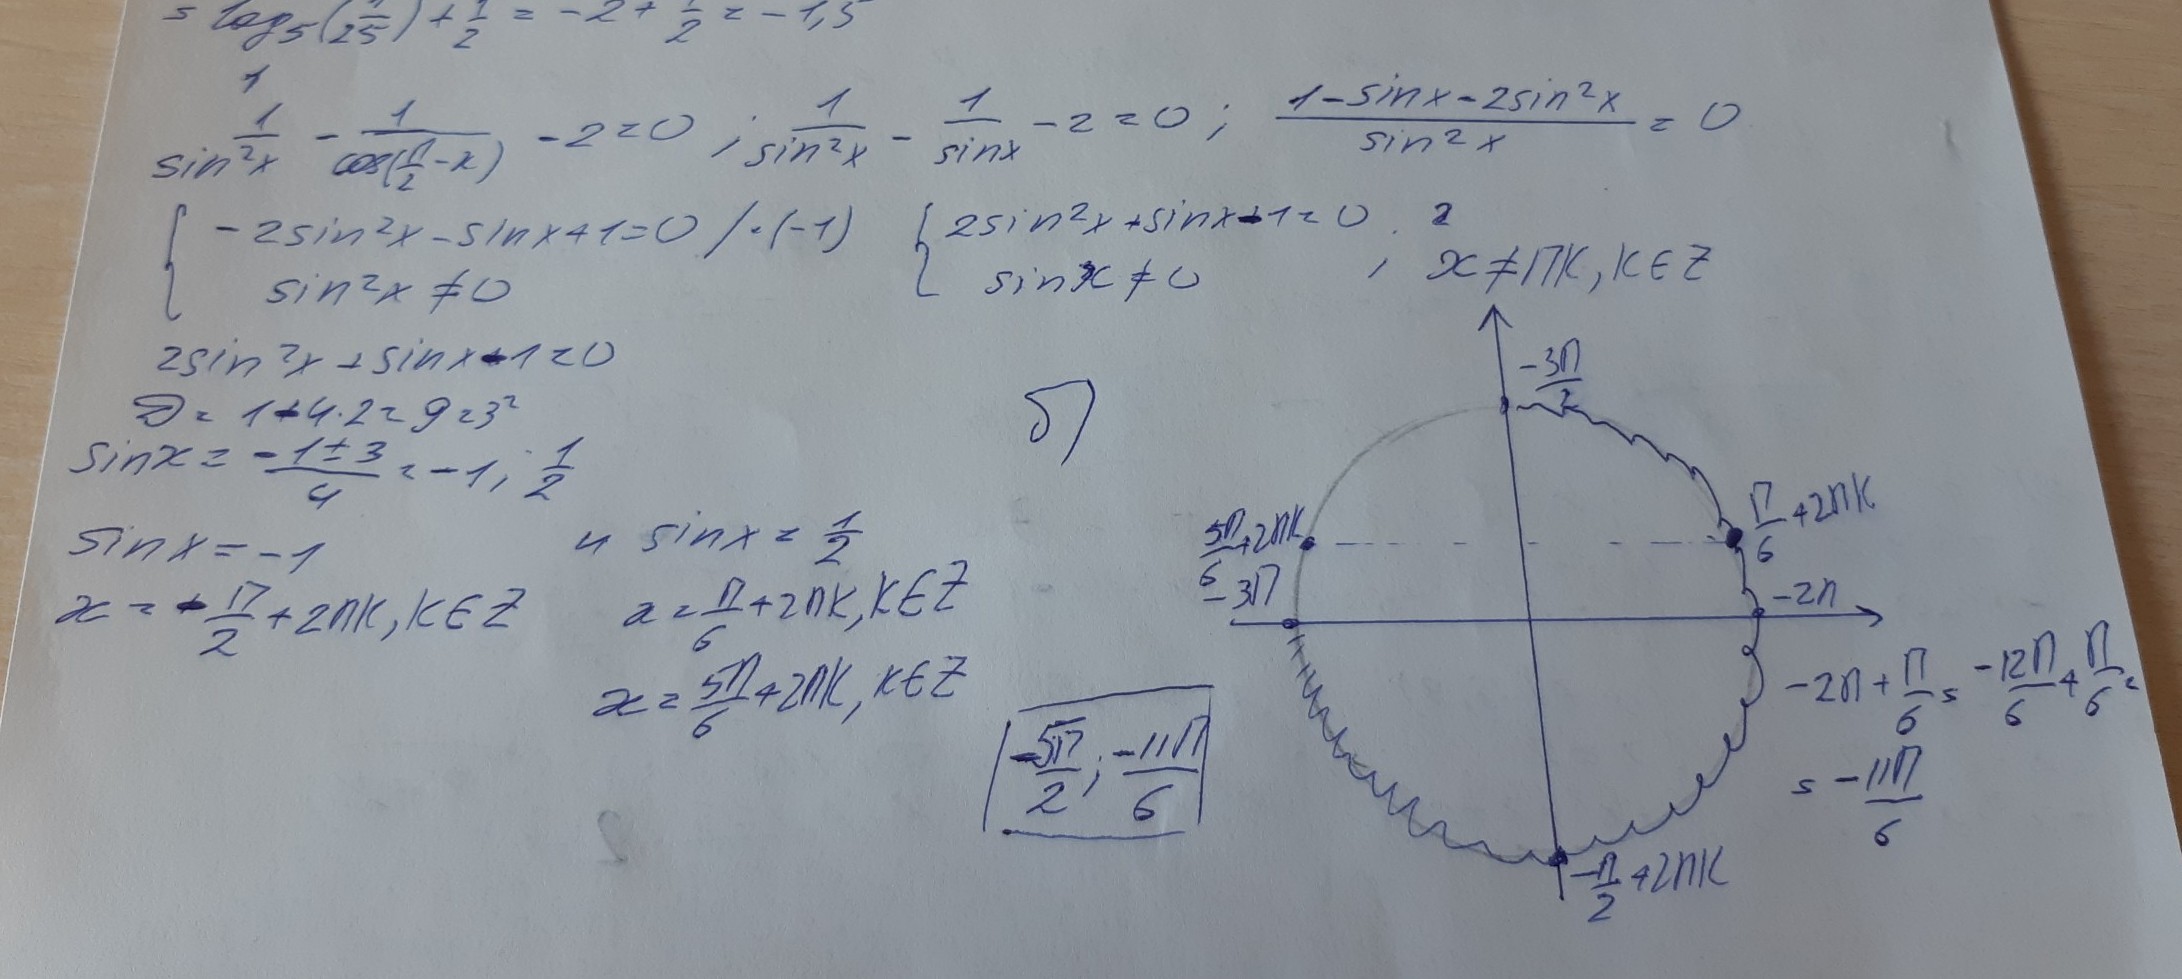 = log₅(1/25) + 1/2 = -2 + 1/2 = -1,5
1
1/sin²x - 1/cos(П/2 - x) - 2 = 0 ; 1/sin²x - 1/sinx - 2 = 0 ; (1 - sinx - 2sin²x)/sin²x = 0
{ -2sin²x - sinx + 1 = 0 / ·(-1) { 2sin²x + sinx - 1 = 0
sin²x ≠ 0 sinx ≠ 0 ; x ≠ ПK, K ∈ Z
2sin²x + sinx - 1 = 0
D = 1 + 4·2 = 9 = 3²
sinx = (-1 ± 3)/4 = -1 ; 1/2
sinx = -1 и sinx = 1/2
x = -П/2 + 2ПK, K ∈ Z x = П/6 + 2ПK, K ∈ Z
x = 5П/6 + 2ПK, K ∈ Z
б)
-3П/2
П/6 + 2ПK
5П/6 + 2ПK
-3П
-2П
-2П + П/6 = -12П/6 + П/6 =
= -11П/6
-П/2 + 2ПK
-5П/2 ; -11П/6